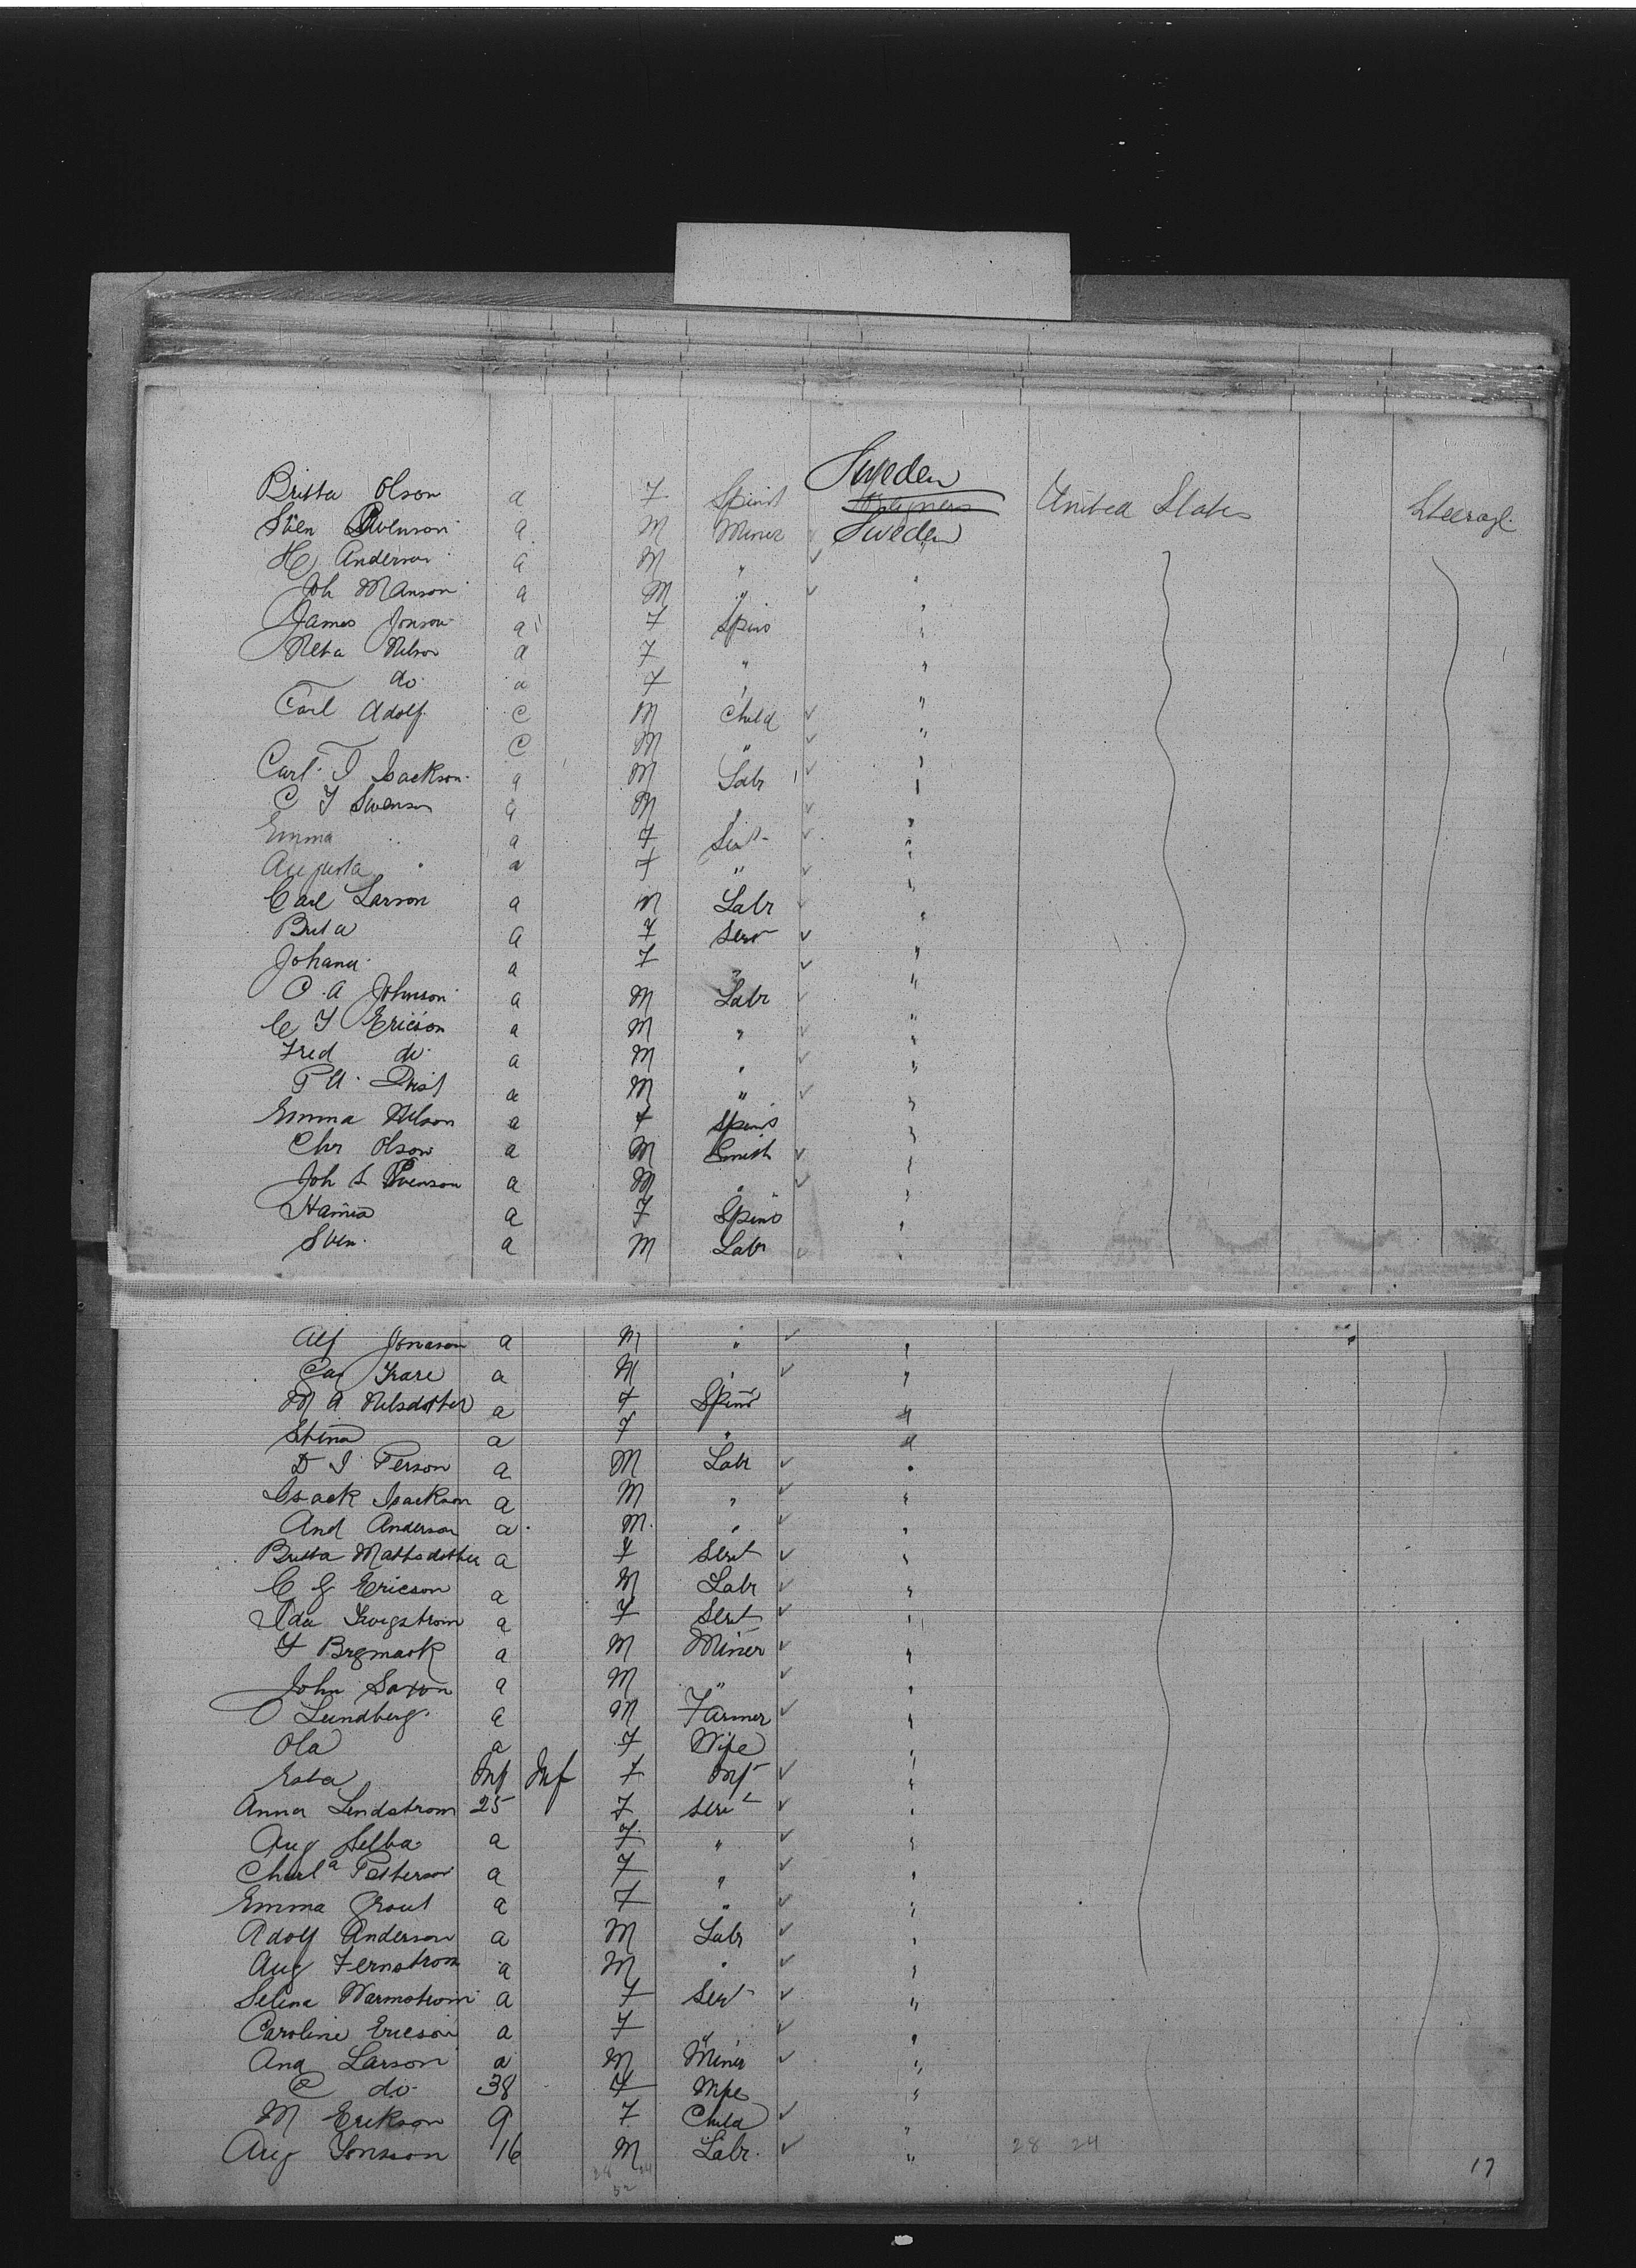 Sweden
Britta Olson a F Spinst United States Steerage
Sven Swenson a M Miner Sweden
H Anderson a M " "
Joh Manson a M " "
James Jonson a F Spins "
Neta Nelson a F " "
do a F " "
Carl Adolf c M Child "
c M " "
Carl I Isackson a M Labr "
C F Swenson a M " "
Emma " a F Sert "
Augusta " a F " "
Carl Larson a M Labr "
Brita a F Sert "
Johana a F " "
C. A Johnson a M Labr "
C F Ericson a M " "
Fred do a M " "
P A a M " "
Emma Nelson a F Spins "
Chr Olson a M Smith "
Joh S Swenson a M " "
Hanna a F Spins "
Sven a M Labr "
Alf Jonason a M " "
a M " "
M A Nelsdotter a F Spins "
Stina a F " "
D I Person a M Labr "
Isack Isackson a M " "
And Anderson a M " "
Britta Mattsdotter a F Sert "
C G Ericson a M Labr "
Ida a F Sert "
F Brgmark a M Miner "
John Saxon a M " "
O Lundberg a M Farmer "
Ola a F Wife "
Esta Inf Inf F Inf "
Anna Lindstrom 25 F Sert "
Aug Selba a F " "
Charlª Petterson a F " "
Emma Grout a F " "
Adolf Anderson a M Labr "
Aug Fernstrom a M " "
Selina Warmstrom a F Sert "
Caroline Ericson a F " "
And Larson a M Miner "
C do 38 F Wife "
M Erikson 9 F Child "
Aug Jonsson 16 M Labr "
28 24
28 24
52
17